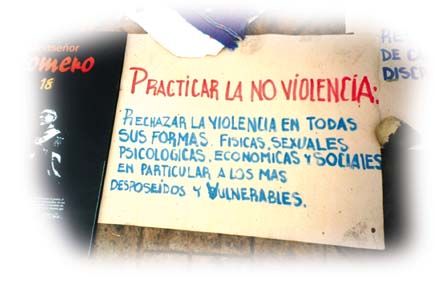 Monseñor
Romero
18
PRACTICAR LA NO VIOLENCIA:
RECHAZAR LA VIOLENCIA EN TODAS
SUS FORMAS. FISICAS, SEXUALES
PSICOLOGICAS, ECONOMICAS Y SOCIALES
EN PARTICULAR A LOS MAS
DESPOSEÍDOS Y VULNERABLES.
RE
DE C
DISCR